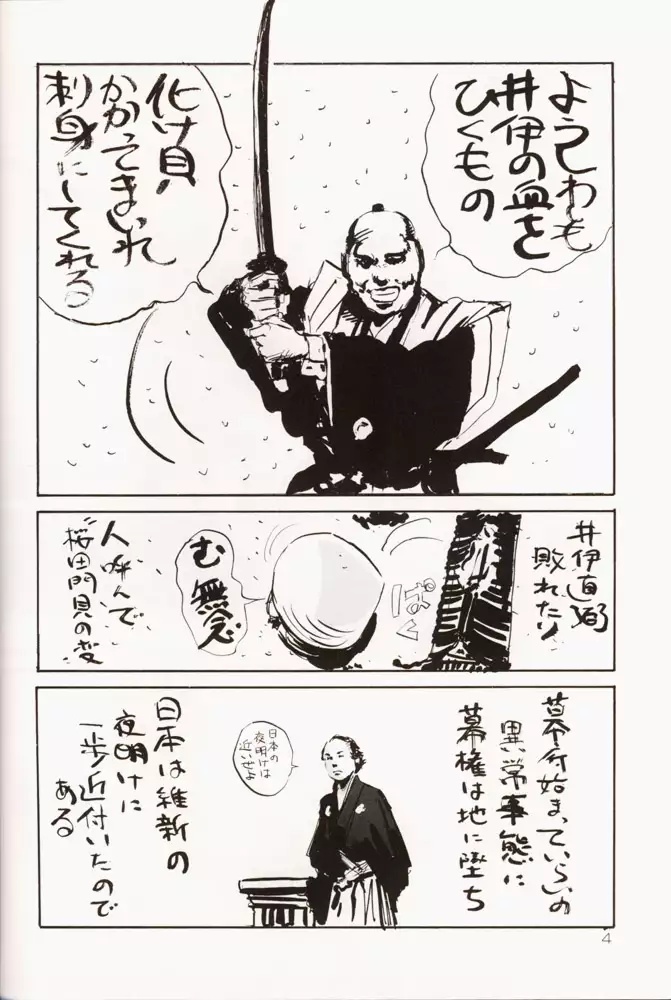 ようしわも
井伊の血を
ひくもの
化け貝
かかってまいれ
刺身にしてくれる
井伊直弼
敗れたり
ぱく
む無念
人呼んで
“桜田門貝の変
幕府始まっていらいの
異常事態に
幕権は地に墜ち
日本の
夜明けは
近いぜよ
日本は維新の
夜明けに
一歩近付いたので
ある
4